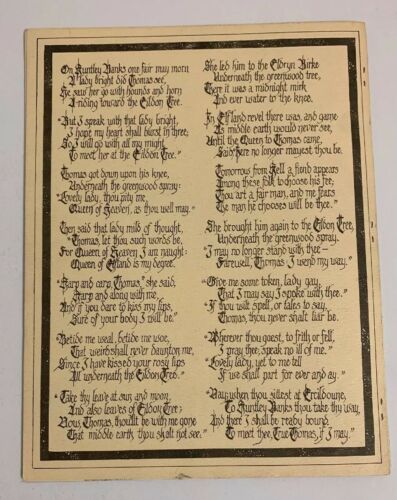 On Huntley Banks one fair may morn
A lady bright did Thomas see,
He saw her go with hounds and horn
A-riding toward the Eildon Tree.
"But I speak with that lady bright,
I hope my heart shall burst in three;
So I will go with all my might
To meet her at the Eildon Tree."
Thomas got down upon his knee,
Underneath the greenwood spray:
"Lovely lady, thou pity me,
Queen of Heaven, as thou well may."
Then said that lady mild of thought,
"Thomas, let thou such words be,
For Queen of Heaven I am naught:
Queen of Elfland is my degree.
"Harp and carp, Thomas," she said,
"Harp and along with me,
And if you dare to kiss my lips,
Sure of your body I will be."
"Betide me weal, betide me woe,
That weird shall never daunton me,
Since I have kissed your rosy lips
All underneath the Eildon Tree."
"Take thy leave at sun and moon
And also leaves of Eildon Tree:
Now, Thomas, thou'lt be with me gone
That middle earth thou shalt not see."
She led him to the Eldryn Birke
Underneath the greenwood tree,
There it was a midnight mirk
And ever water to the knee.
In Elfland revel there was, and game
As middle earth would never see,
Until the Queen to Thomas came,
Said: "Here no longer mayest thou be.
Tomorrow from Hell a fiend appears
Among these folk to choose his fee;
Thou art a fair man, and me fears
The man he chooses will be thee."
She brought him again to the Eildon Tree,
Underneath the greenwood spray.
"I may no longer stand with thee—
Farewell, Thomas, I wend my way."
"Give me some token, lady gay,
That I may say I spoke with thee."
"If thou wilt spell, or tales to say,
Thomas, thou never shalt liar be.
Wherever thou goest, to frith or fell,
I pray thee, speak no ill of me."
"Lovely lady, yet to me tell
If we shall part for ever and ay."
"Nay, when thou sittest at Ercildoune,
To Huntley Banks thou take thy way,
And there I shall be ready bound
To meet thee, True Thomas, if I may."